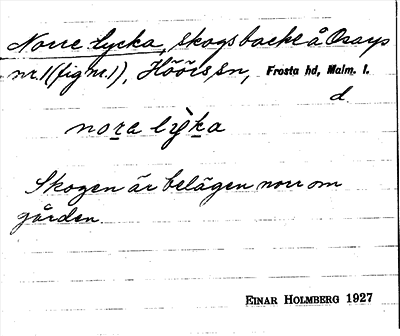 Norre-lycka, skogsbacke å Osarp
nr.1 (fig nr.1), Höörs sn, Frosta hd, Malm. l.
d.
nora lỳka
Skogen är belägen norr om
gården.
EINAR HOLMBERG 1927